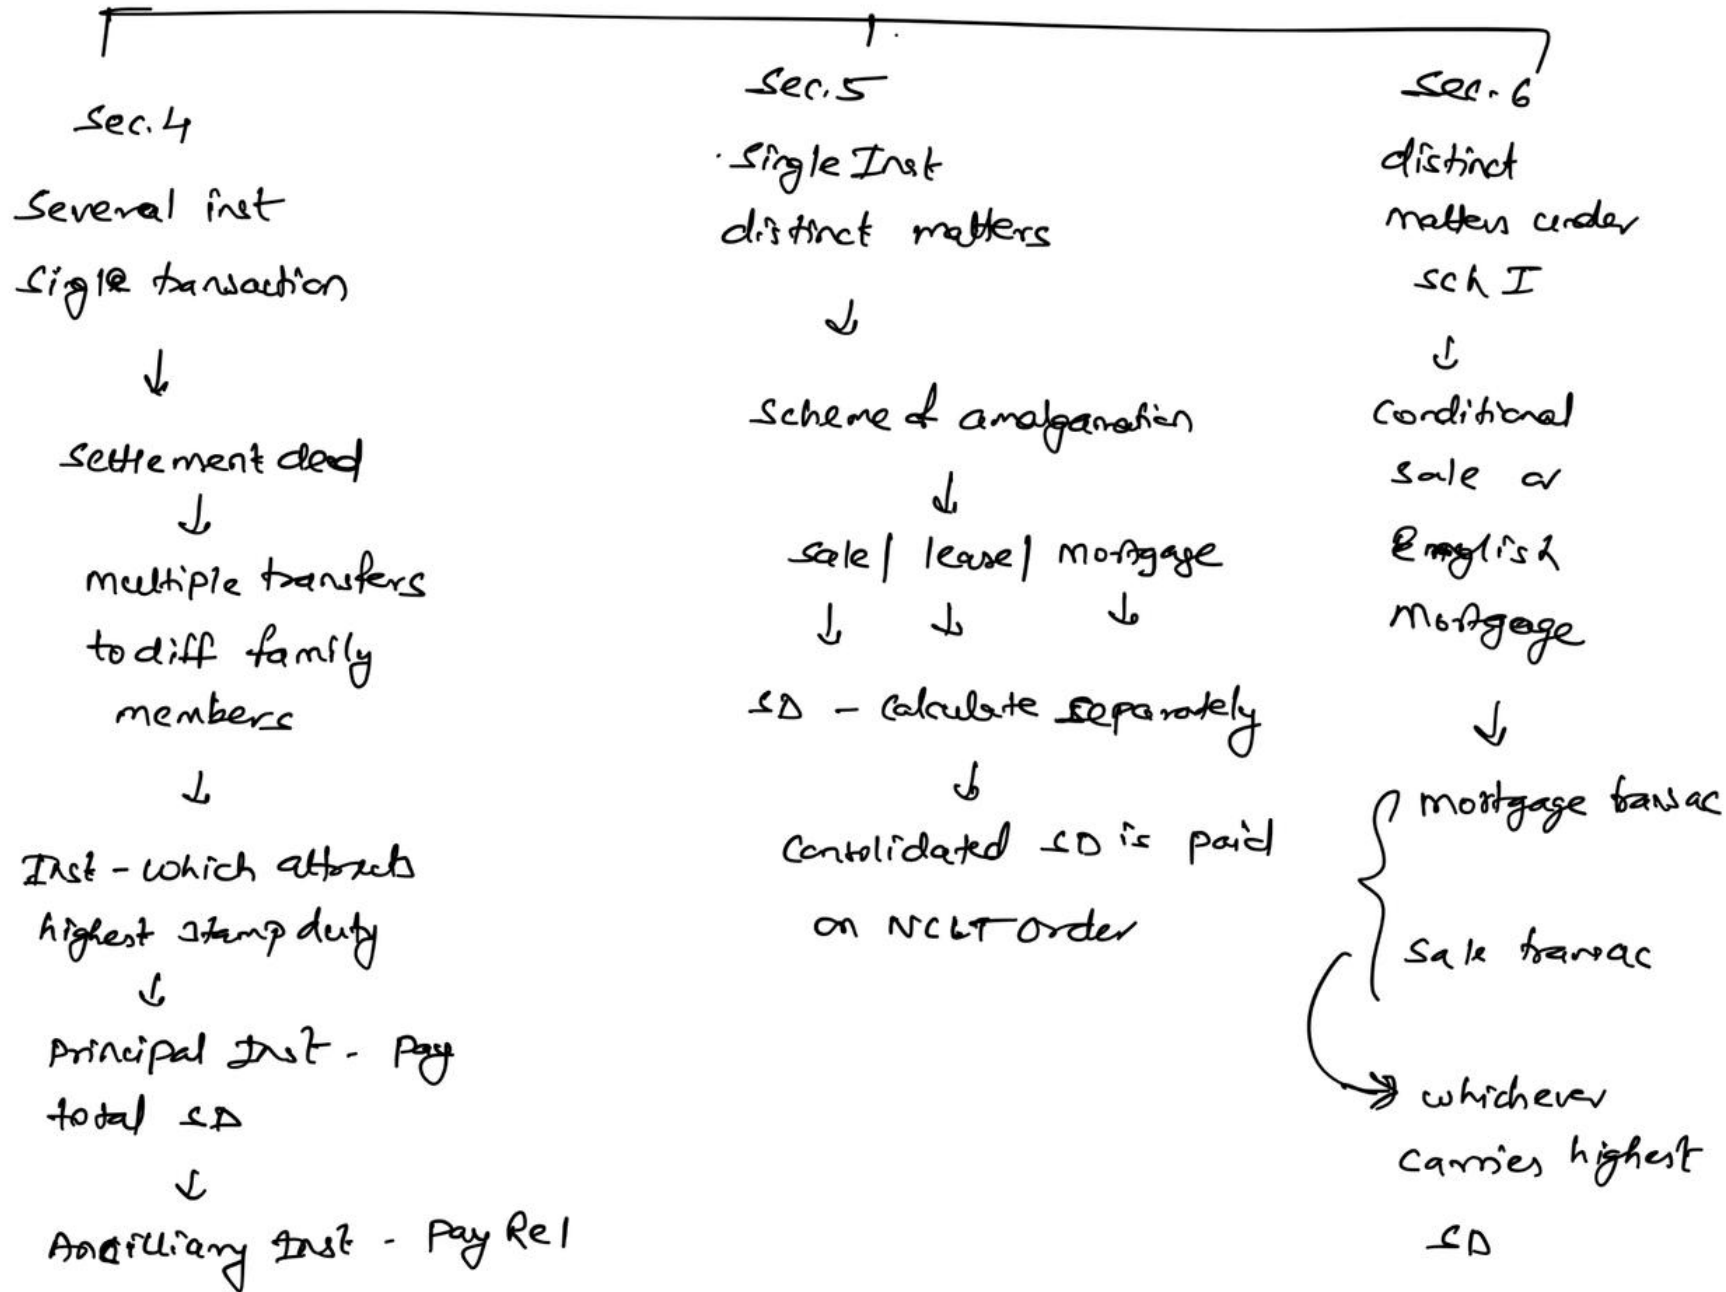 Sec. 4
Several inst
Sigle transaction
↓
Settlement deed
↓
multiple transfers
to diff family
members
↓
Inst - which attracts
highest stamp duty
↓
Principal Inst - Pay
total SD
↓
Ancilliary Inst - Pay Re 1
Sec. 5
Single Inst
distinct matters
↓
Scheme of amalgamation
↓
Sale / lease / mortgage
↓ ↓ ↓
SD - Calculate separately
↓
Consolidated SD is paid
on NCLT Order
Sec. 6
distinct
matters under
Sch I
↓
Conditional
Sale or
English
Mortgage
↓
mortgage transac
Sale transac
whichever
carries highest
SD